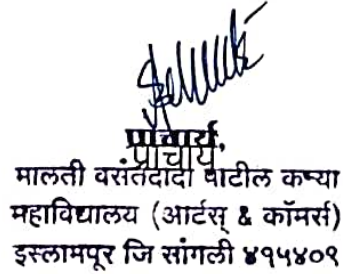 प्राचार्य,
प्राचार्य
मालती वसंतदादा पाटील कन्या
महाविद्यालय (आर्टस् & कॉमर्स)
इस्लामपूर जि सांगली ४१५४०९